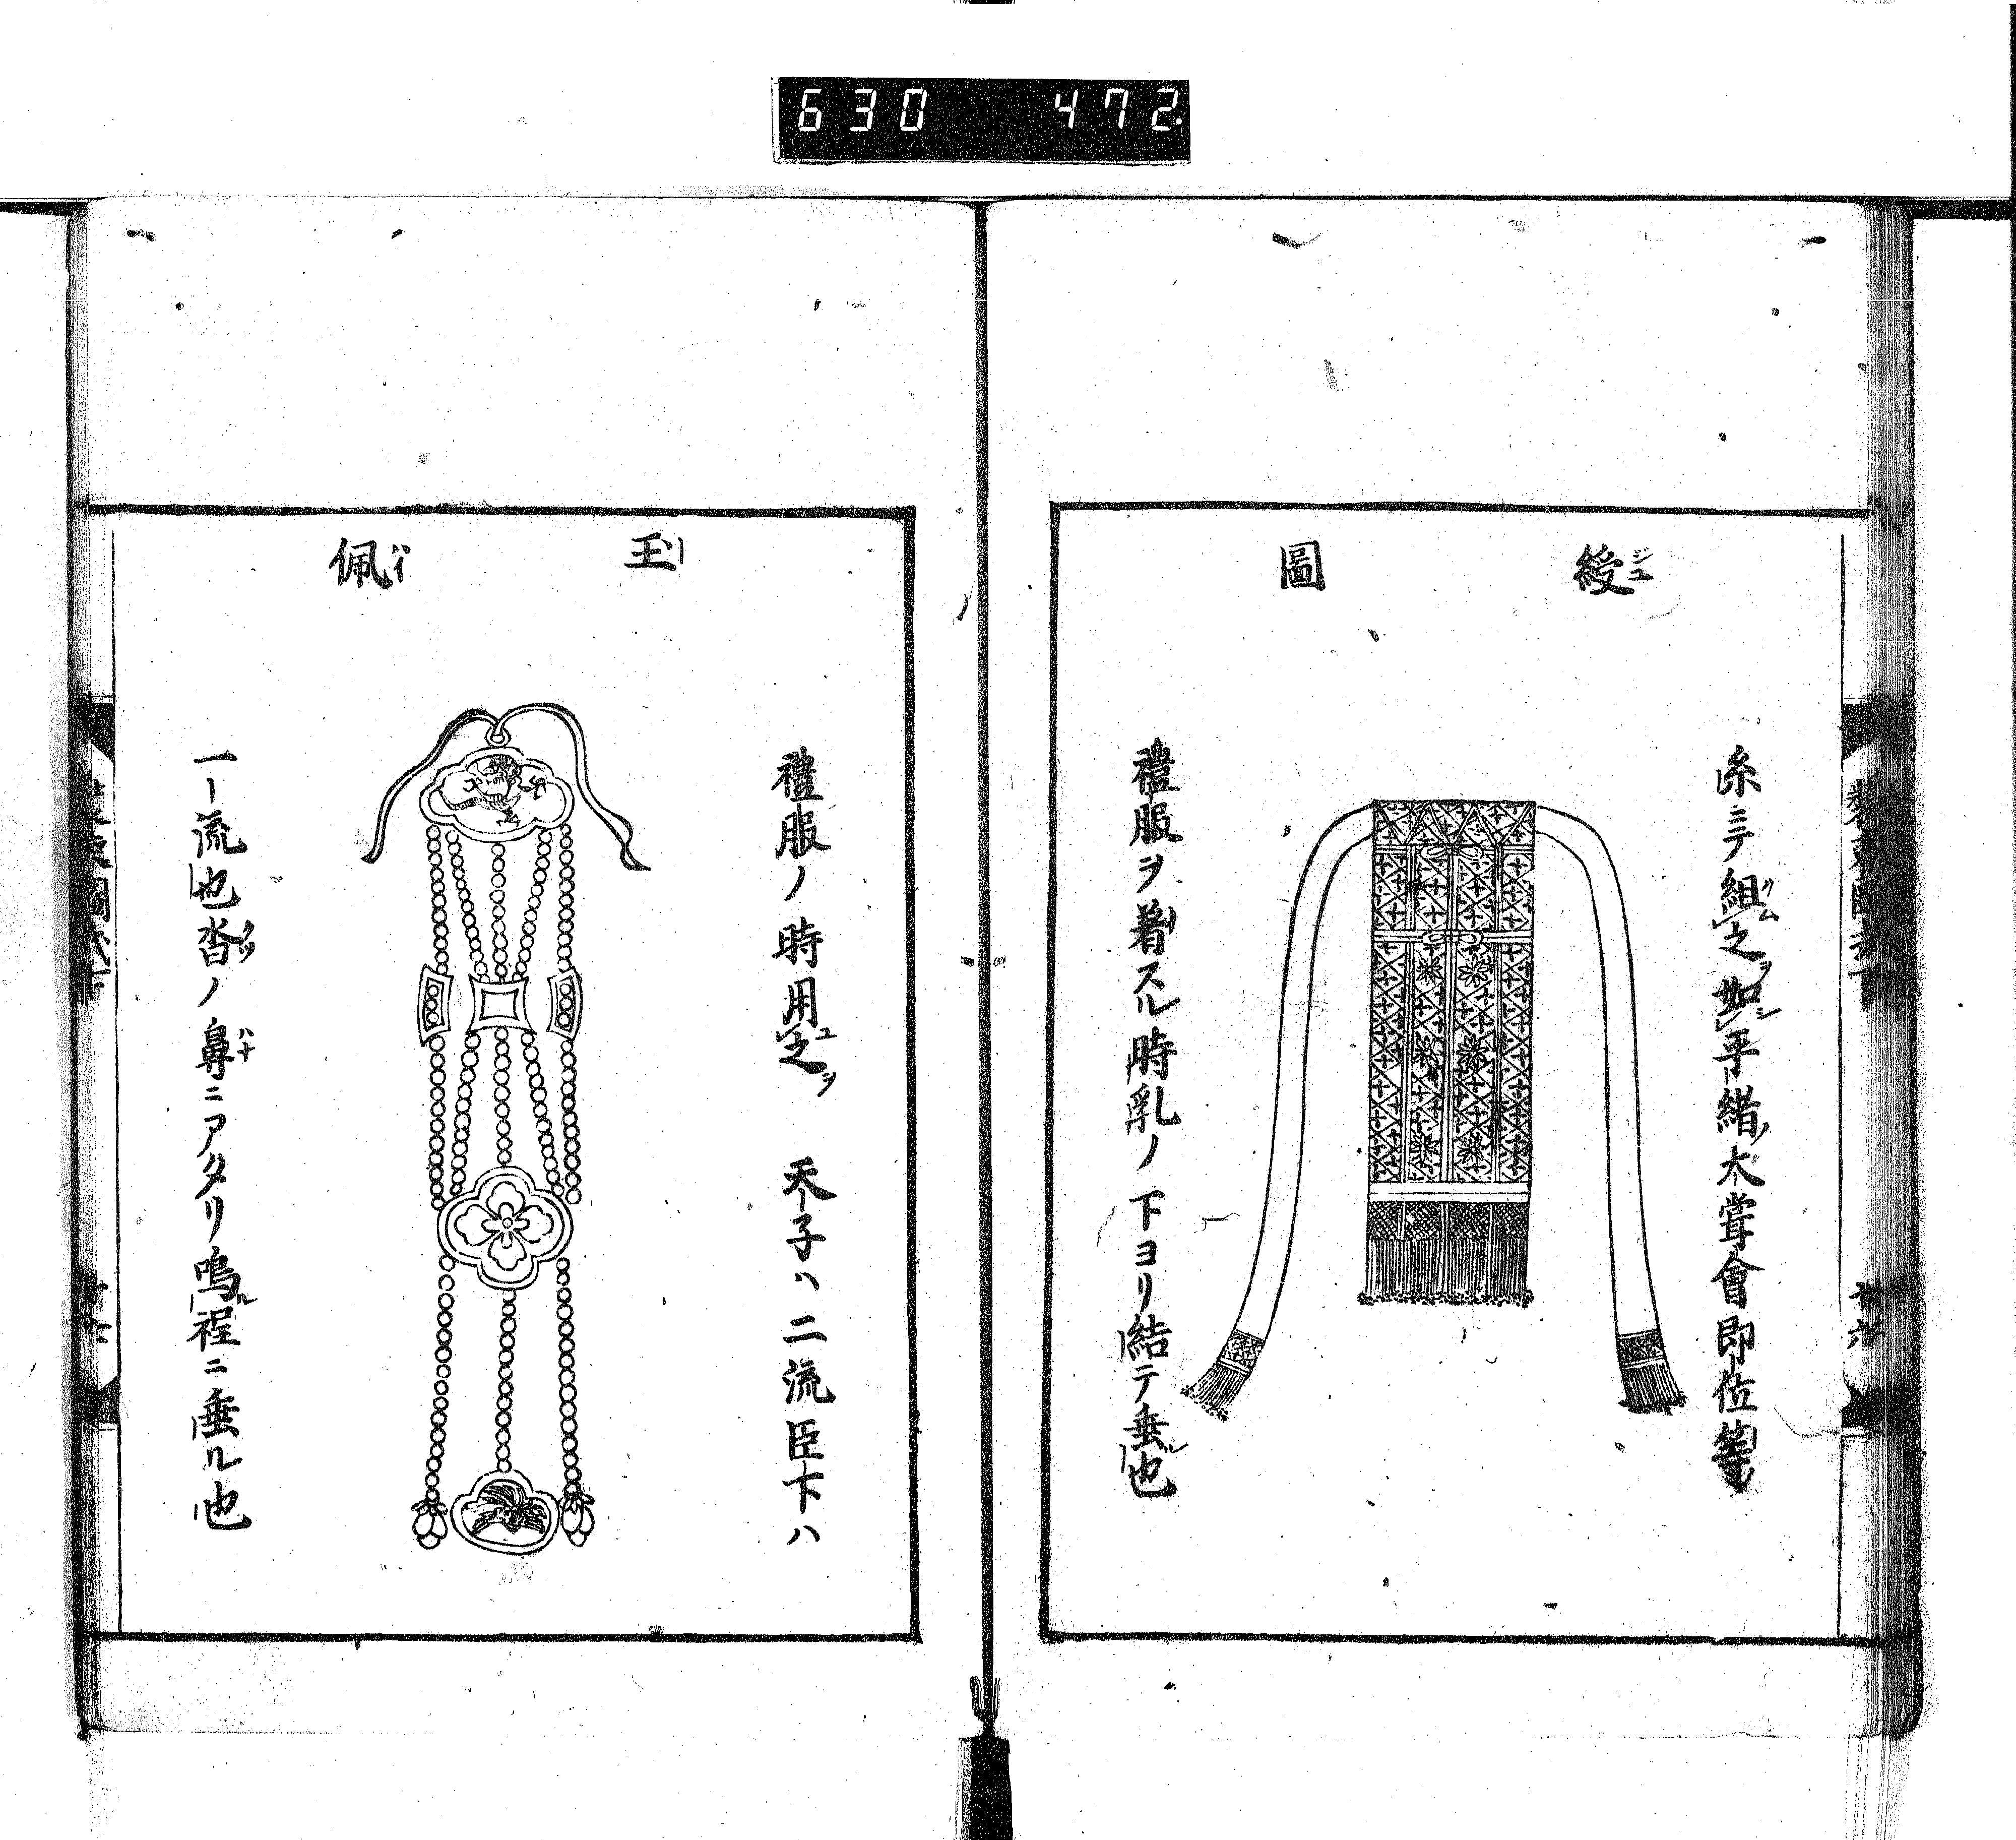 630 472
綬圖
糸ニテ組之如平緒大甞會即位等
禮服ヲ著スル時乳ノ下ヨリ結テ垂也
玉佩
禮服ノ時用之 天子ハ二流臣下ハ
一流也沓ノ鼻ニアタリ鳴程ニ垂ル也